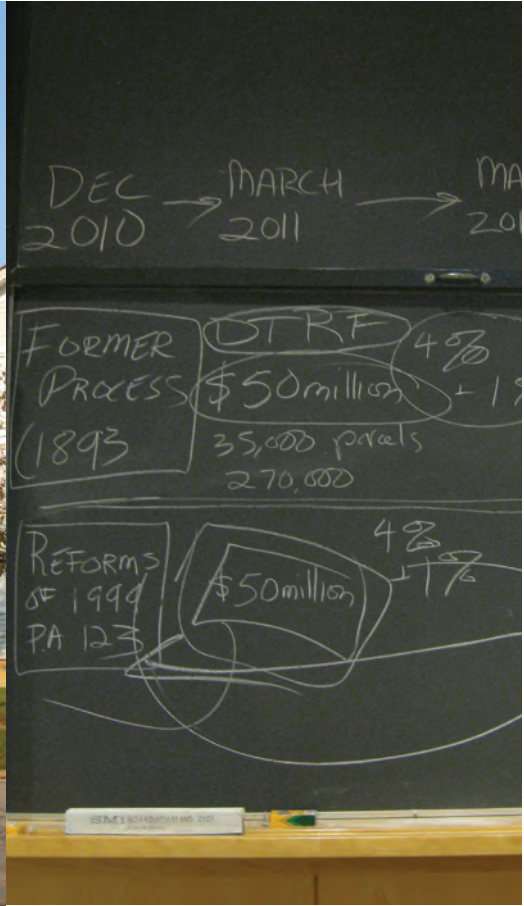 DEC → MARCH → MA
2010 2011 201
FORMER
PROCESS
(1893
DTRF
$50 million
35,000 parcels
270,000
4%
+ 1%
REFORMS
OF 1999
P.A 123
$50 million
4%
+ 1%